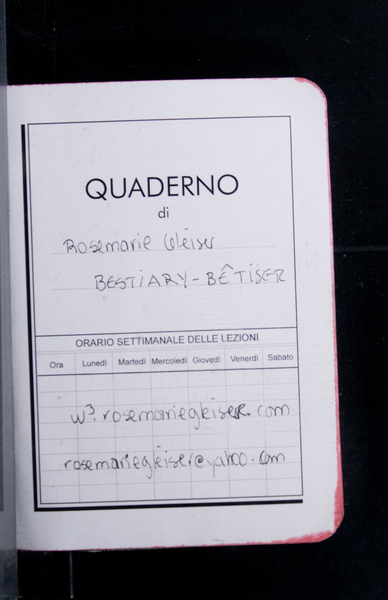 QUADERNO
di
Rosemarie Gleiser
BESTIARY - BÊTISER
ORARIO SETTIMANALE DELLE LEZIONI
Ora Lunedì Martedì Mercoledì Giovedì Venerdì Sabato
w³. rosemariegleiser.com
rosemariegleiser@yahoo.com